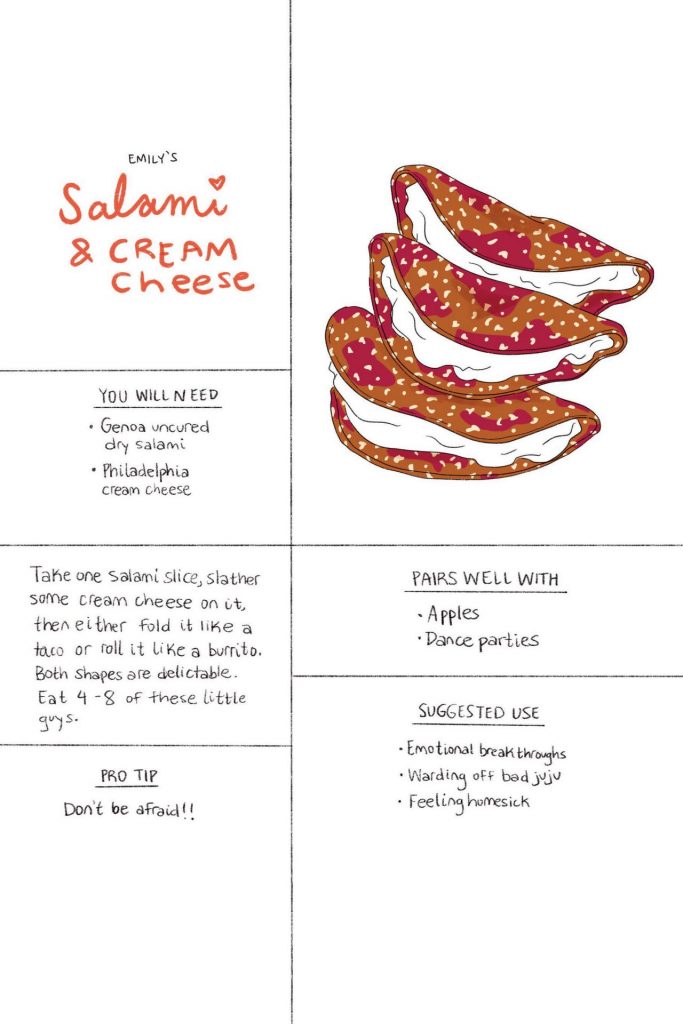 EMILY'S
Salami
& CREAM
cheese
YOU WILL NEED
• Genoa uncured
dry salami
• Philadelphia
cream cheese
Take one salami slice, slather
some cream cheese on it,
then either fold it like a
taco or roll it like a burrito.
Both shapes are delictable.
Eat 4-8 of these little
guys.
PRO TIP
Don't be afraid!!
PAIRS WELL WITH
• Apples
• Dance parties
SUGGESTED USE
• Emotional breakthroughs
• Warding off bad juju
• Feeling homesick